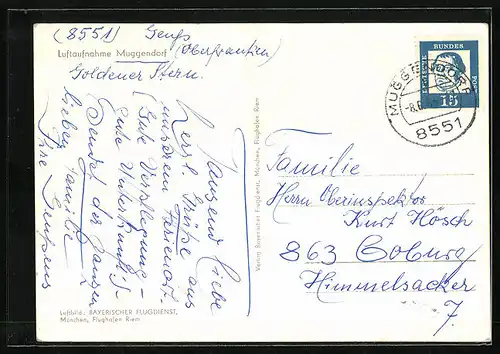 (8551)
Luftaufnahme Muggendorf (Oberfranken)
Goldener Stern.
Tausend liebe
herzl. Grüße aus
unserem Ferienort.
(Gute Verpflegung -
gute Unterkunft) -
Sendet der ganzen
lieben Familie
Ihre
Luftbild: BAYERISCHER FLUGDIENST,
München, Flughafen Riem
Verlag Bayerischer Flugdienst, München, Flughafen Riem
DEUTSCHE BUNDESPOST
15
MUGGENDORF
8551
Familie
Herrn Oberinspektor
Kurt Hösch
863 Coburg
Himmelsacker
7.